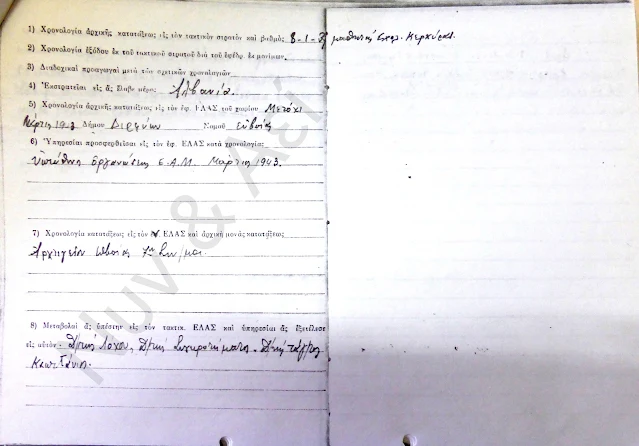 1) Χρονολογία ἀρχικῆς κατατάξεως εἰς τὸν τακτικὸν στρατὸν καὶ βαθμὸς 8-1-
2) Χρονολογία ἐξόδου ἐκ τοῦ τακτικοῦ στρατοῦ διὰ τοὺς ἐφέδρ. ἐκ μονίμων.
3) Διαδοχικαὶ προαγωγαὶ μετὰ τῶν σχετικῶν χρονολογιῶν
4) Ἐκστρατεῖαι εἰς ἃς ἔλαβε μέρος: Ἀλβανία.
5) Χρονολογία ἀρχικῆς κατατάξεως εἰς τὸν ἐφ. ΕΛΑΣ τοῦ χωρίου Μετόχι
Δήμου Διρφύων Νομοῦ Εὐβοίας
6) Ὑπηρεσίαι προσφερθεῖσαι εἰς τὸν ἐφ. ΕΛΑΣ κατὰ χρονολογία:
ὑπεύθυνος ὀργανώσεως Ε.Α.Μ. Μάρτιος 1943.
7) Χρονολογία κατατάξεως εἰς τὸν ΕΛΑΣ καὶ ἀρχικὴ μονὰς κατατάξεως
Ἀρχηγεῖον Εὐβοίας 7ον Συν/μα.
8) Μεταβολαὶ ἃς ὑπέστη εἰς τὸν τακτικ. ΕΛΑΣ καὶ ὑπηρεσίαι ἃς ἐξετέλεσε
εἰς αὐτόν. Δ/τὴς Λόχου, Δ/τὴς Συγκροτήματος. Δ/τὴς τάγματος
Νυν & Αεί